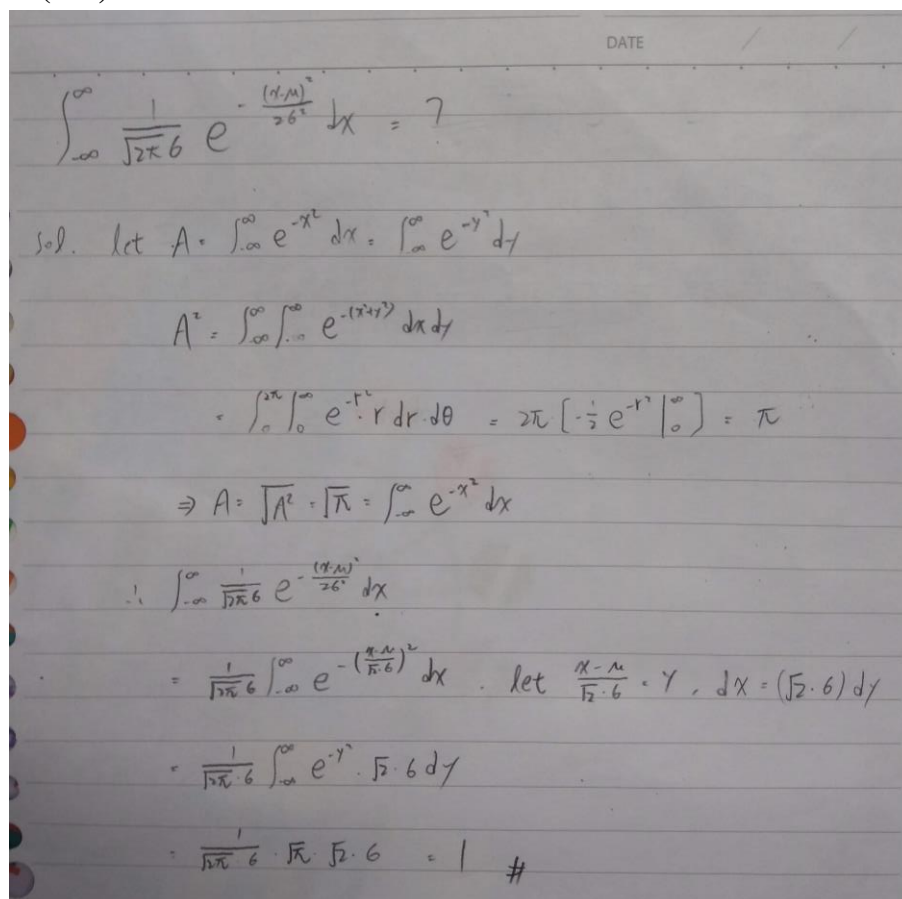 DATE / /
∫_{-∞}^{∞} \frac{1}{\sqrt{2π}σ} e^{-\frac{(x-μ)^2}{2σ^2}} dx = ?
sol. let A = ∫_{-∞}^{∞} e^{-x^2} dx = ∫_{-∞}^{∞} e^{-y^2} dy
A^2 = ∫_{-∞}^{∞} ∫_{-∞}^{∞} e^{-(x^2+y^2)} dx dy
= ∫_{0}^{2π} ∫_{0}^{∞} e^{-r^2} · r dr · dθ = 2π [ -\frac{1}{2} e^{-r^2} |_{0}^{∞} ] = π
⇒ A = \sqrt{A^2} = \sqrt{π} = ∫_{-∞}^{∞} e^{-x^2} dx
∴ ∫_{-∞}^{∞} \frac{1}{\sqrt{2π}σ} e^{-\frac{(x-μ)^2}{2σ^2}} dx
= \frac{1}{\sqrt{2π}σ} ∫_{-∞}^{∞} e^{-(\frac{x-μ}{\sqrt{2}·σ})^2} dx . let \frac{x-μ}{\sqrt{2}·σ} = y , dx = (\sqrt{2}·σ) dy
= \frac{1}{\sqrt{2π}·σ} ∫_{-∞}^{∞} e^{-y^2} · \sqrt{2}·σ dy
= \frac{1}{\sqrt{2π}σ} · \sqrt{π} · \sqrt{2}·σ = 1 #